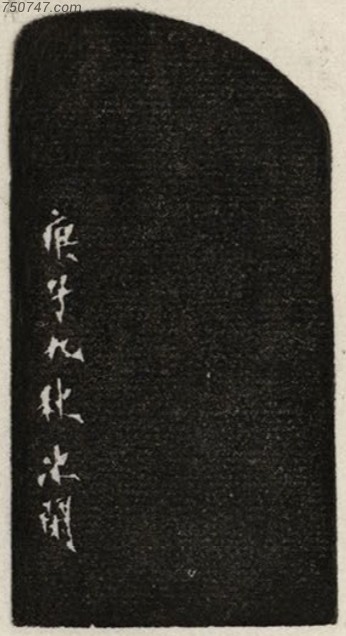 750747.com
庚午九秋次閑